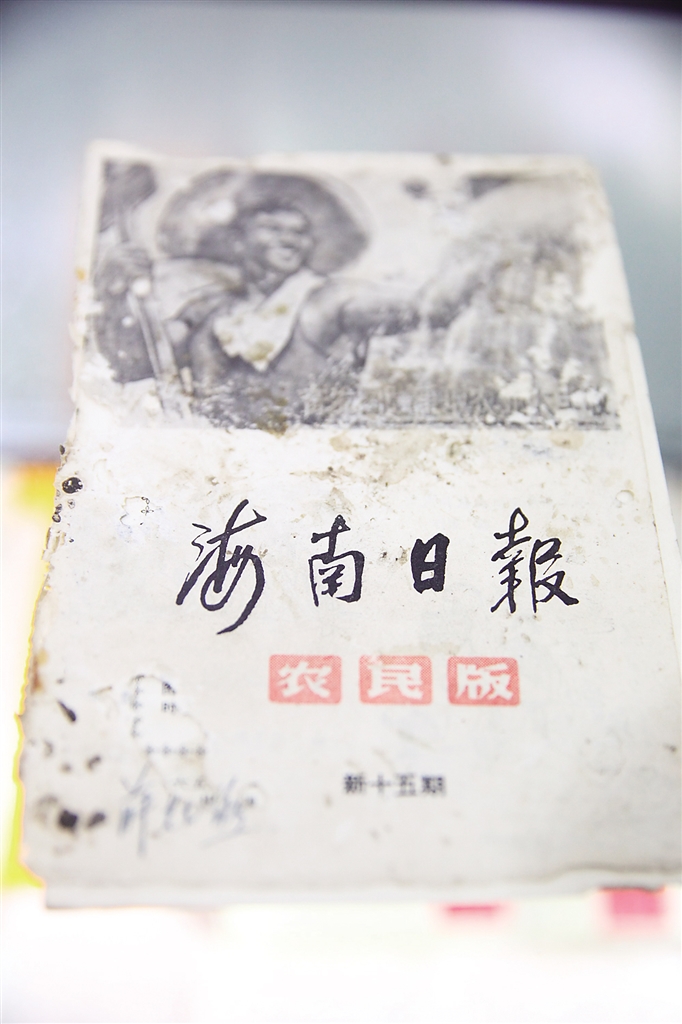 海南日報
农民版
新十五期